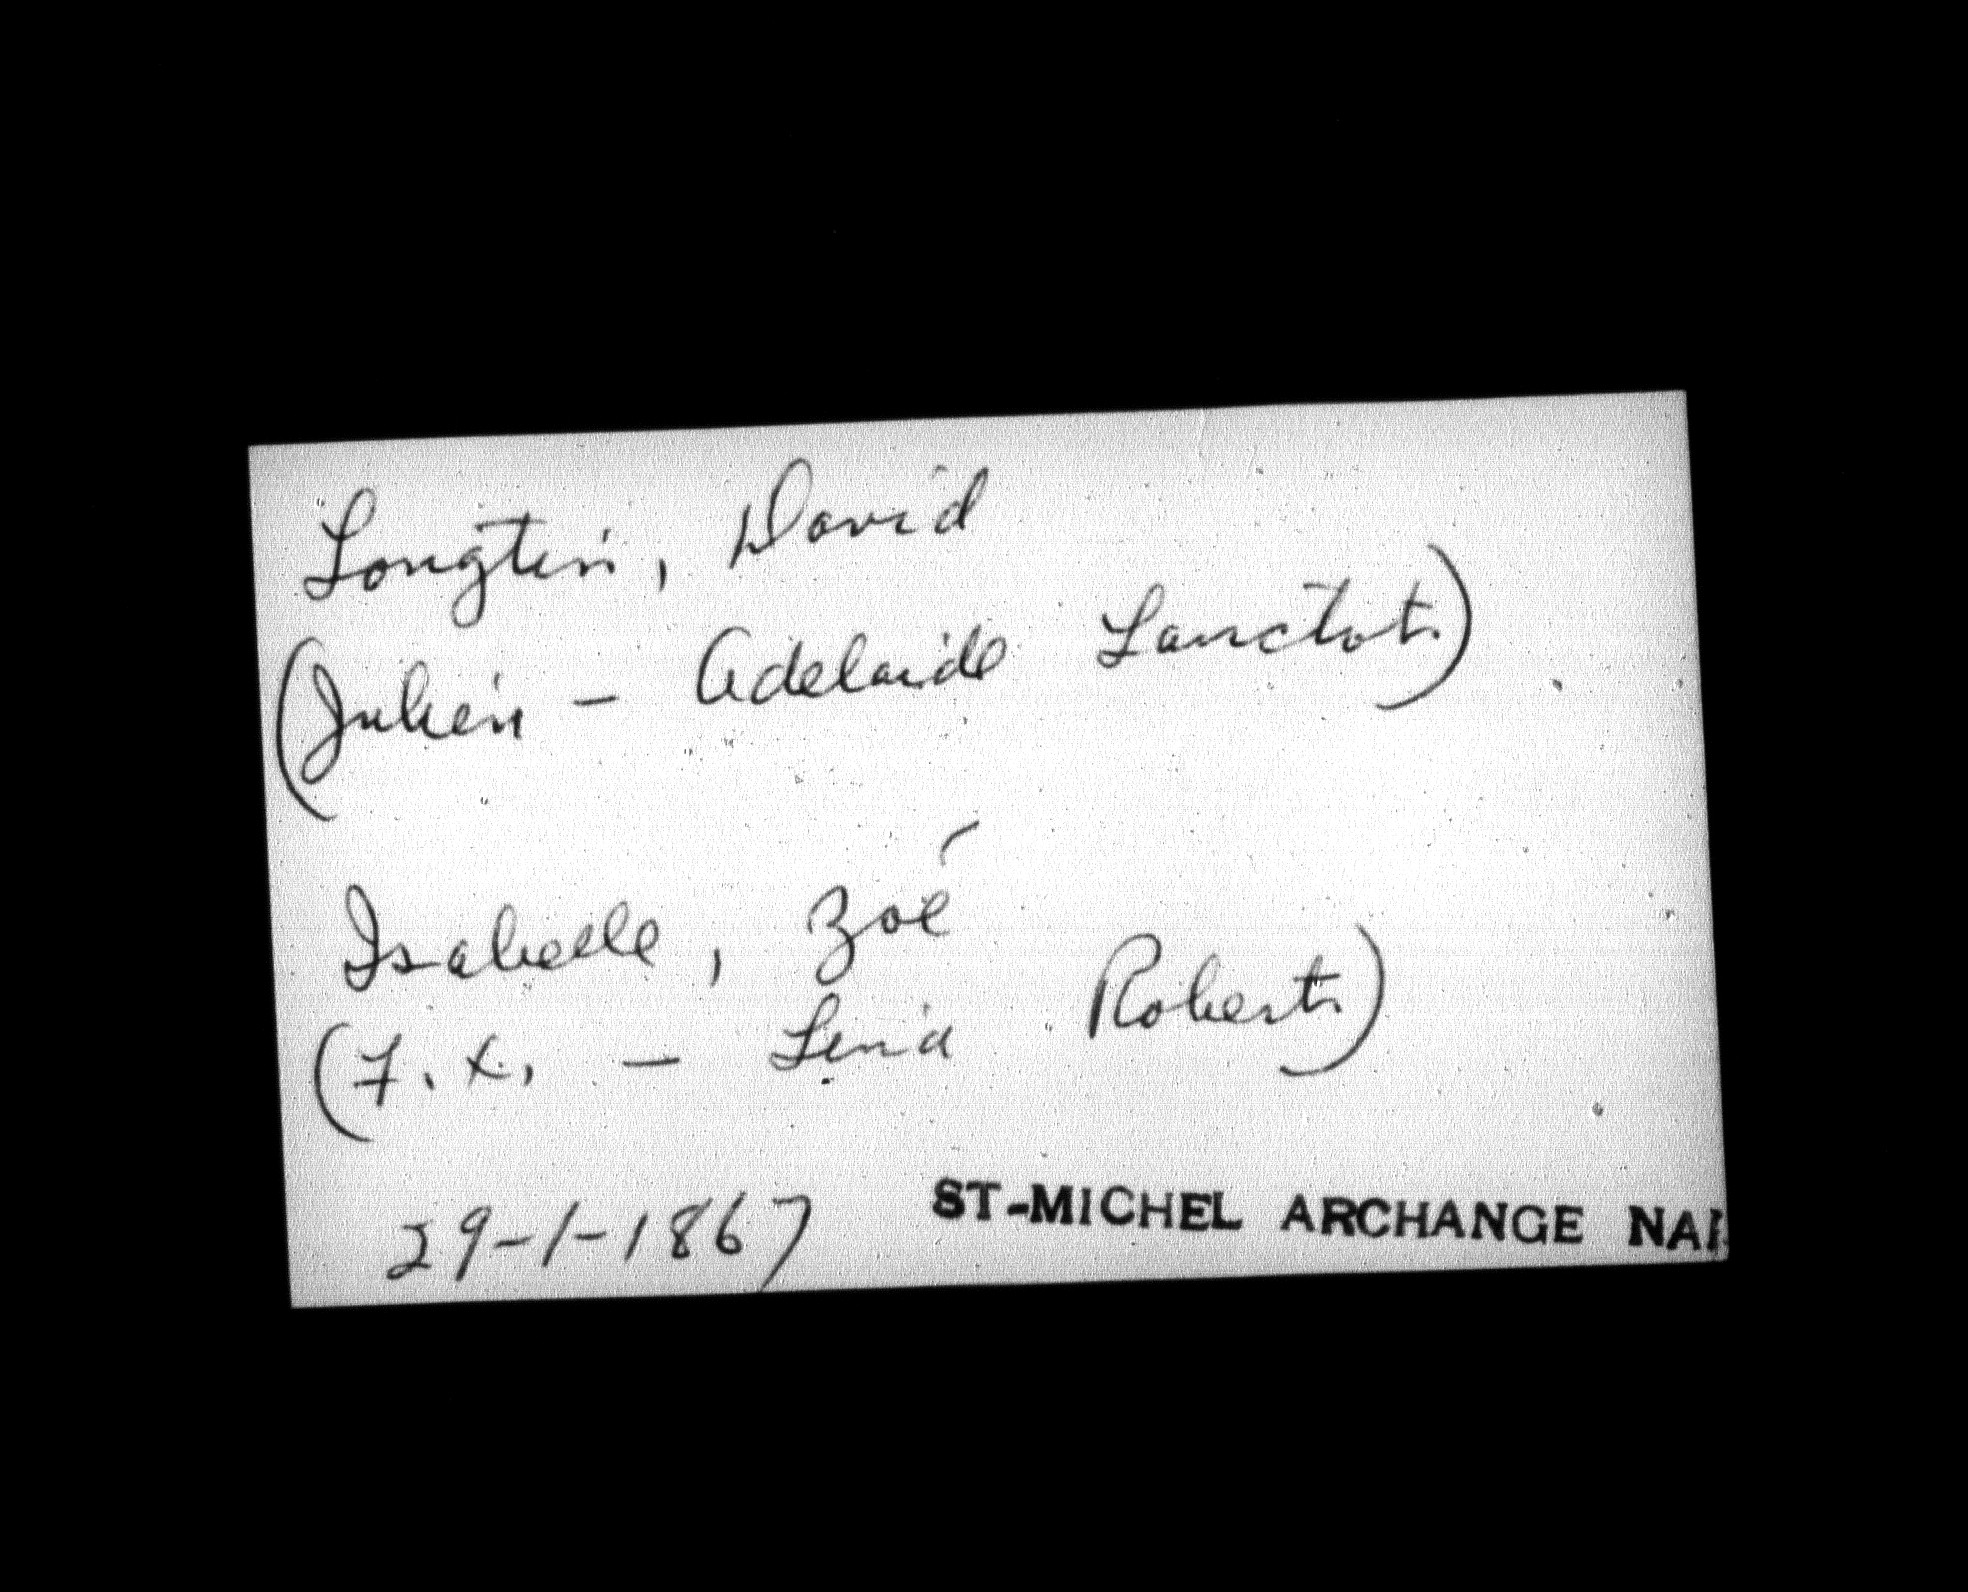 Longtin, David
(Julien - Adelaide Lanctot)
Isabelle, Zoé
(F. X. - Lena Robert)
29-1-1867 ST-MICHEL ARCHANGE NAP